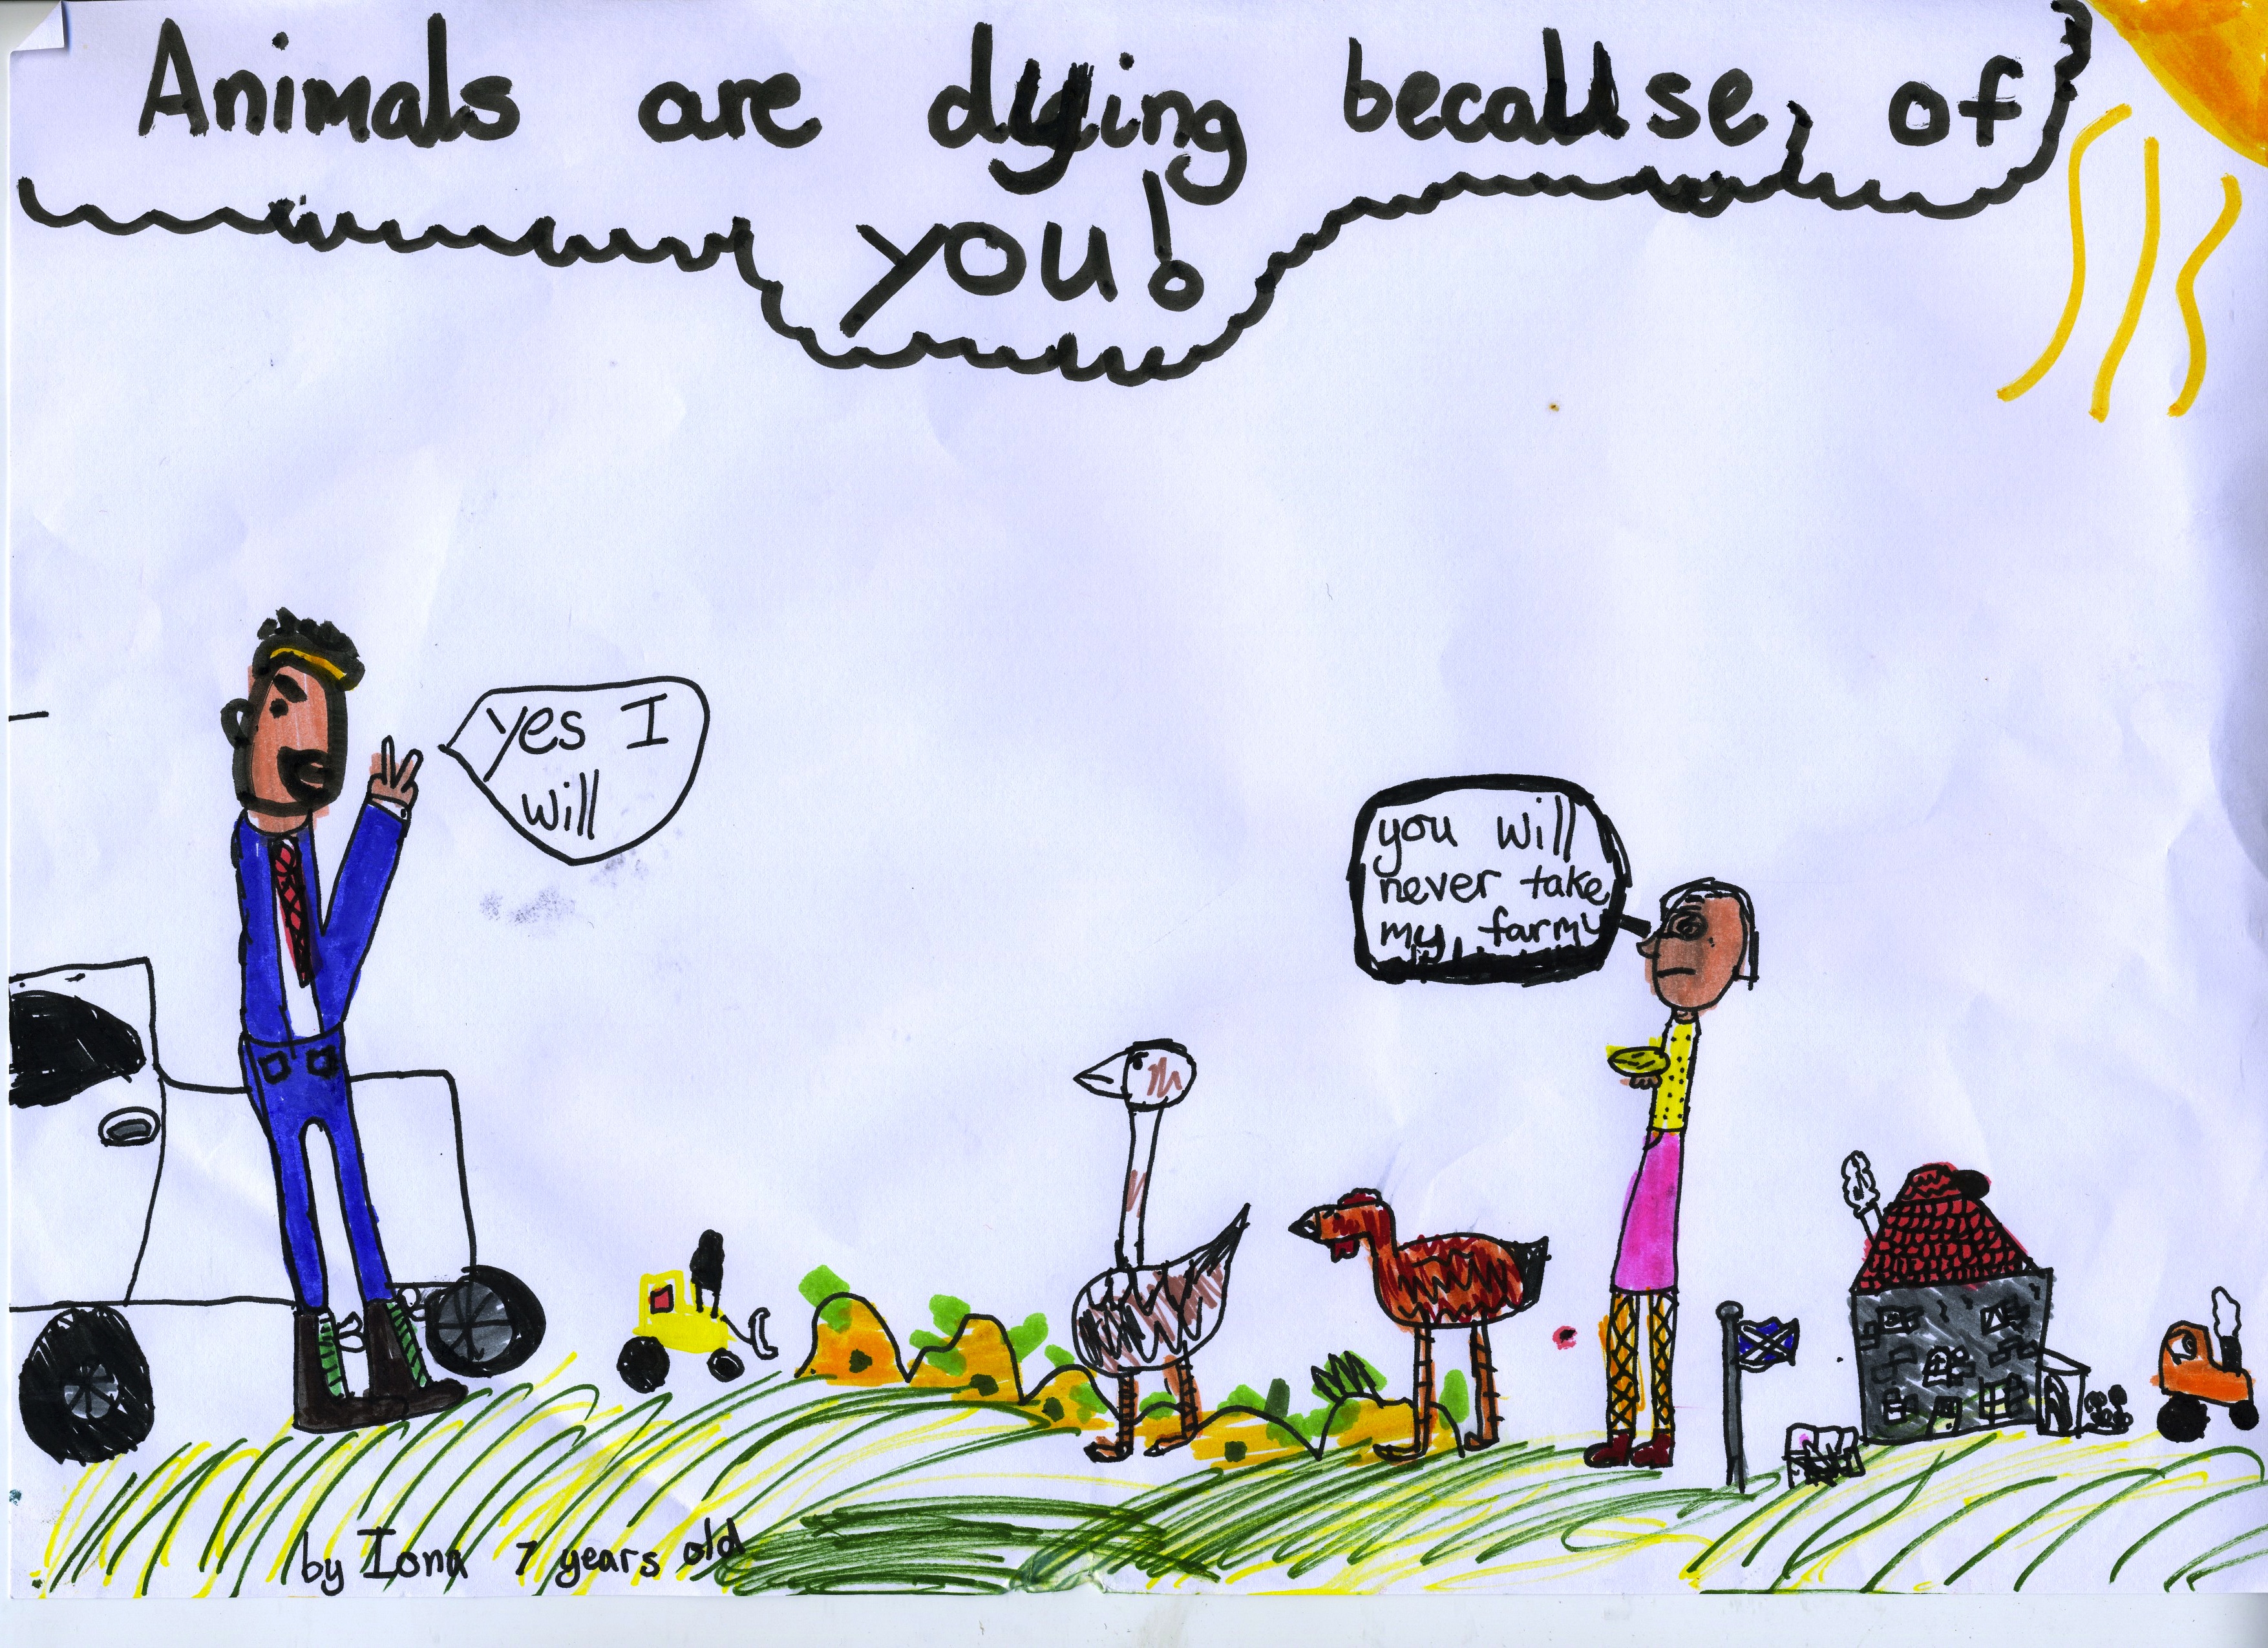 Animals are dying because, of
you!
yes I
will
you will
never take
my farm
by Iona 7 years old